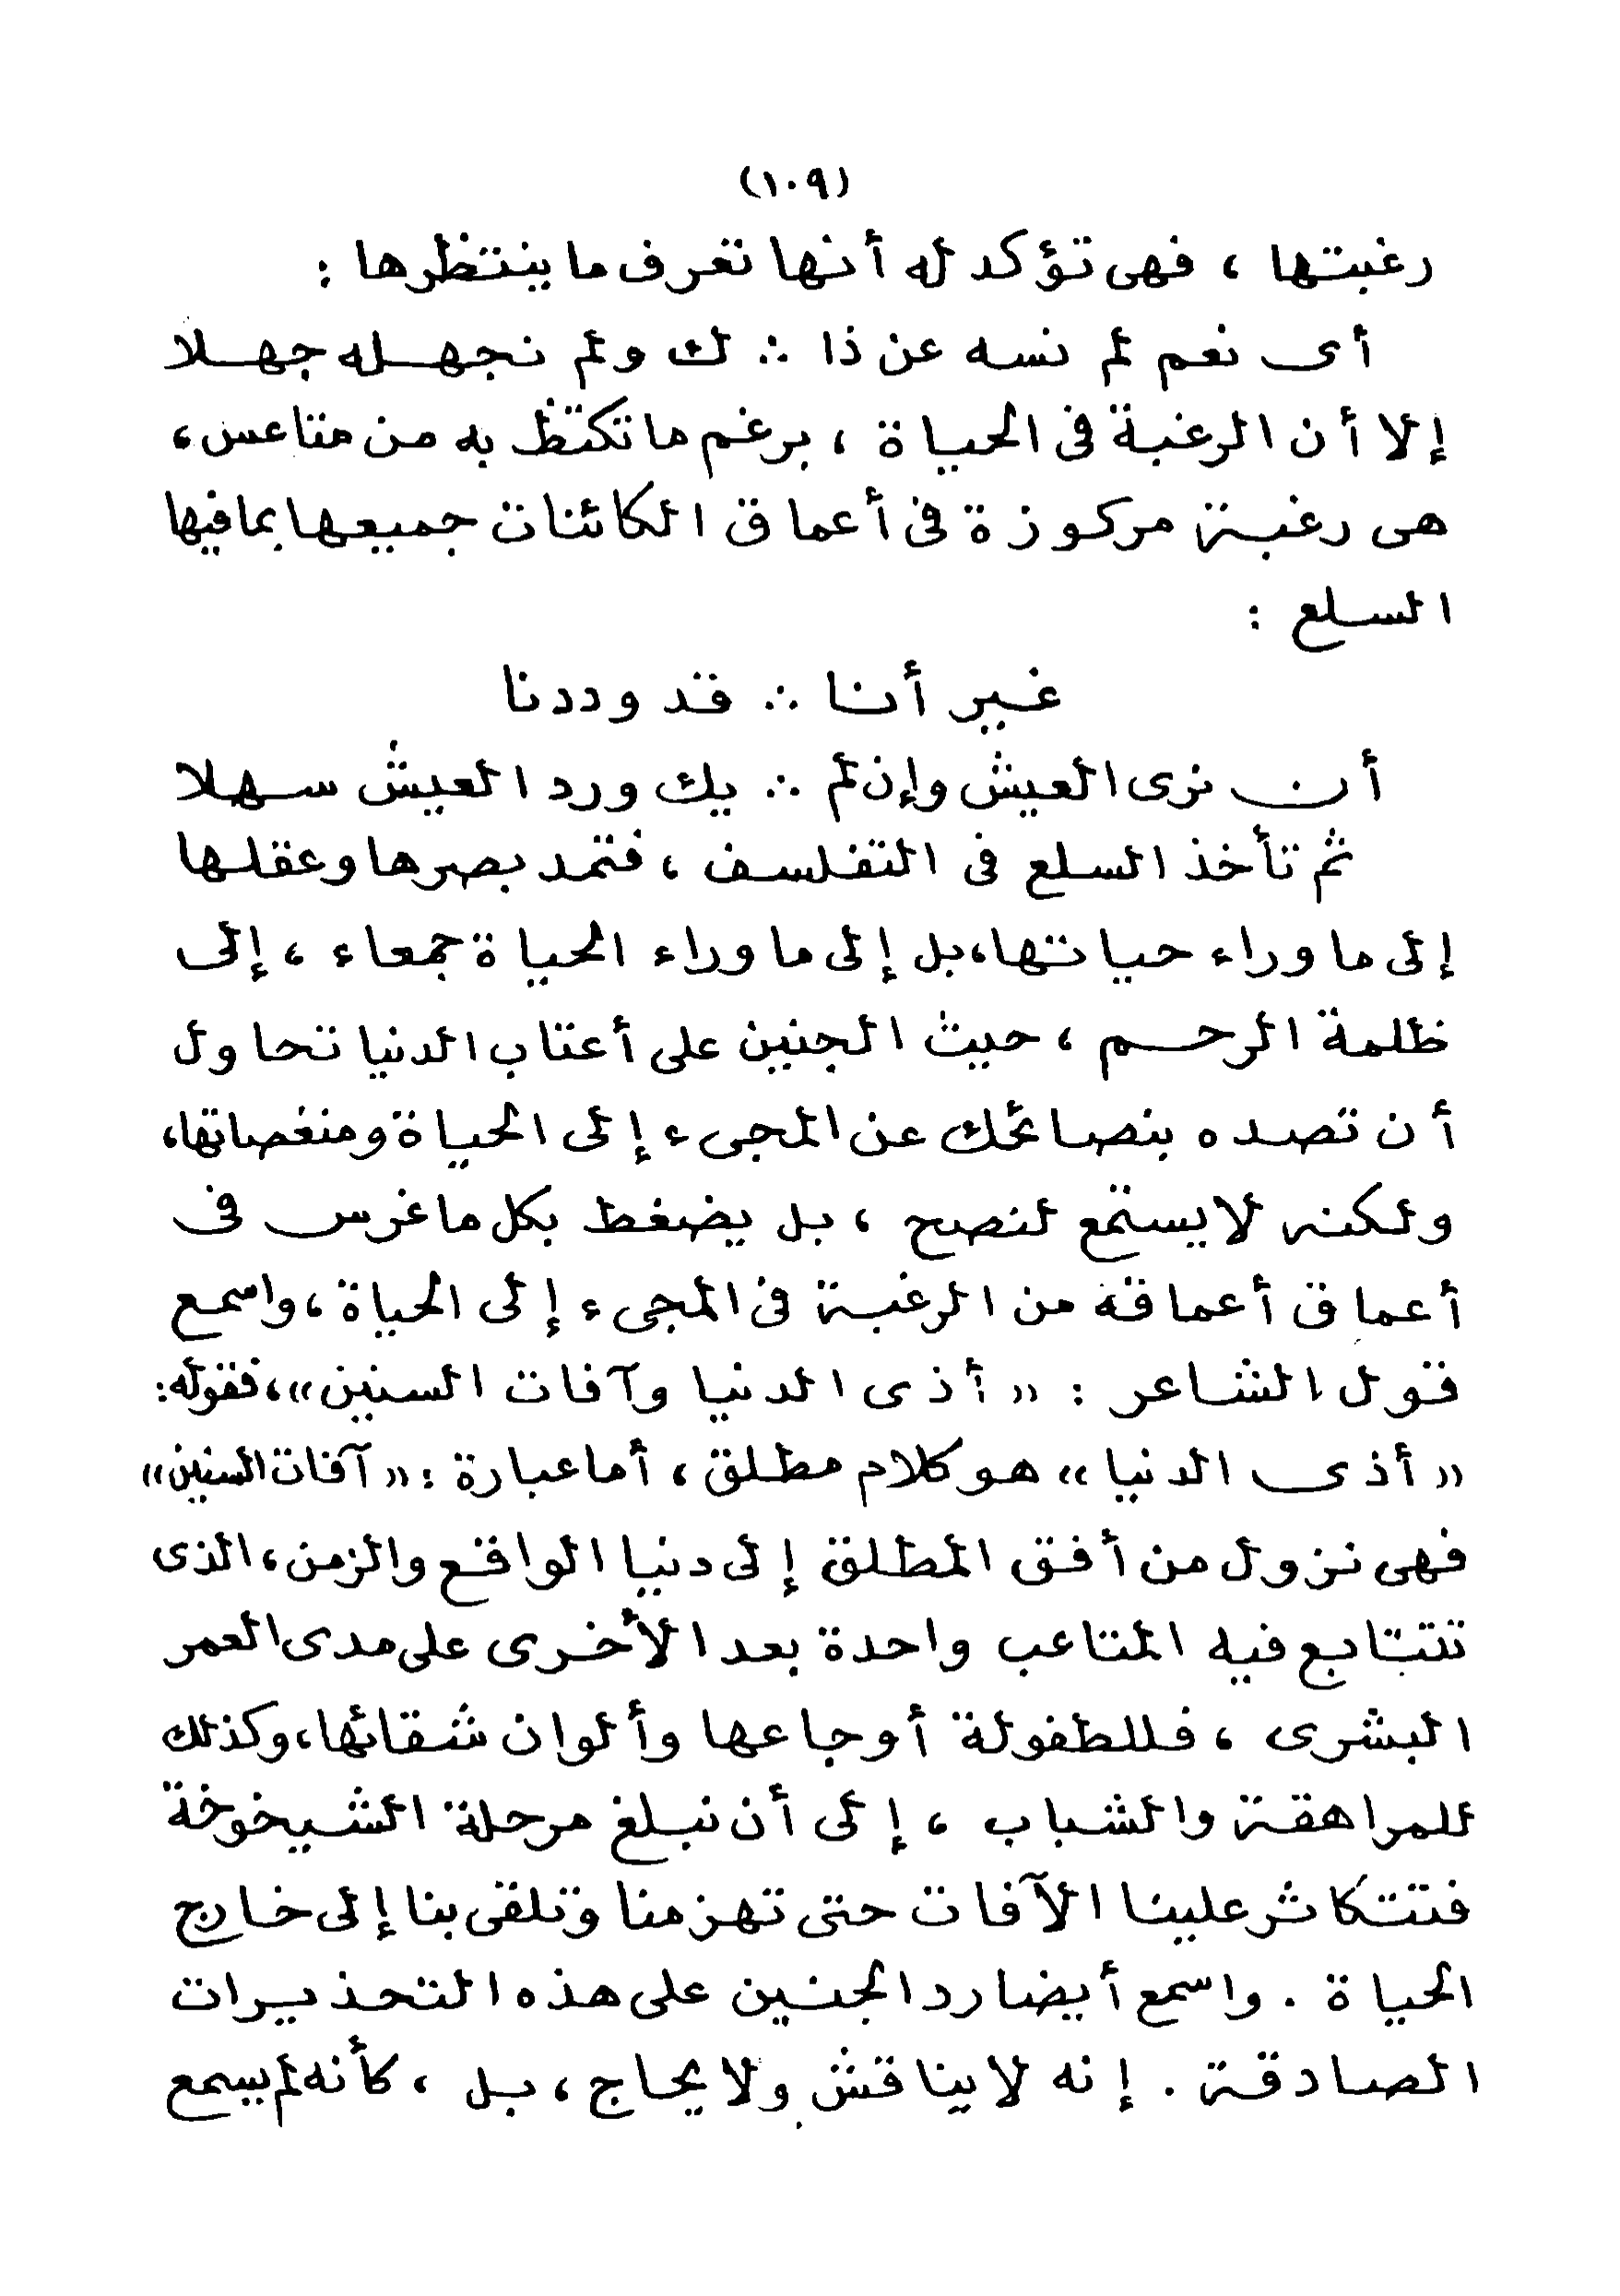 (١٠٩)
رغبتها ، فهى تؤكد له أنها تعرف ما ينتظرها :
أى نعم لم نسه عن ذا ∴ لك ولم نجهله جهلا
إلا أن الرغبة فى الحياة ، برغم ما تكتظ به من متاعس ،
هى رغبة مركوزة فى أعماق الكائنات جميعها بما فيها
السلع :
غير أنا ∴ قد وددنا
أن نرى العيش وإن لم ∴ يك ورد العيش سهلا
ثم تأخذ السلع فى التفلسف ، فتمد بصرها وعقلها
إلى ما وراء حياتها، بل إلى ما وراء الحياة جمعاء ، إلى
ظلمة الرحم ، حيث الجنين على أعتاب الدنيا تحاول
أن تصده بنصائحك عن المجىء إلى الحياة ومنغصاتها،
ولكنه لا يستمع لنصح ، بل يضغط بكل ما غرس فى
أعماق أعماقه من الرغبة فى المجىء إلى الحياة ، واسمع
قول الشاعر : « أذى الدنيا وآفات السنين »، فقوله :
« أذى الدنيا » هو كلام مطلق ، أما عبارة : « آفات السنين »
فهى نزول من أفق المطلق إلى دنيا الواقع والزمن ، الذى
تتتابع فيه المتاعب واحدة بعد الأخرى على مدى العمر
البشرى ، فللطفولة أوجاعها وألوان شقائها، وكذلك
للمراهقة والشباب ، إلى أن نبلغ مرحلة الشيخوخة
فتتكاثر علينا الآفات حتى تهزمنا وتلقى بنا إلى خارج
الحياة . واسمع أيضا رد الجنين على هذه التحذيرات
الصادقة . إنه لا يناقش ولا يحاج ، بل ، كأنه لم يسمع